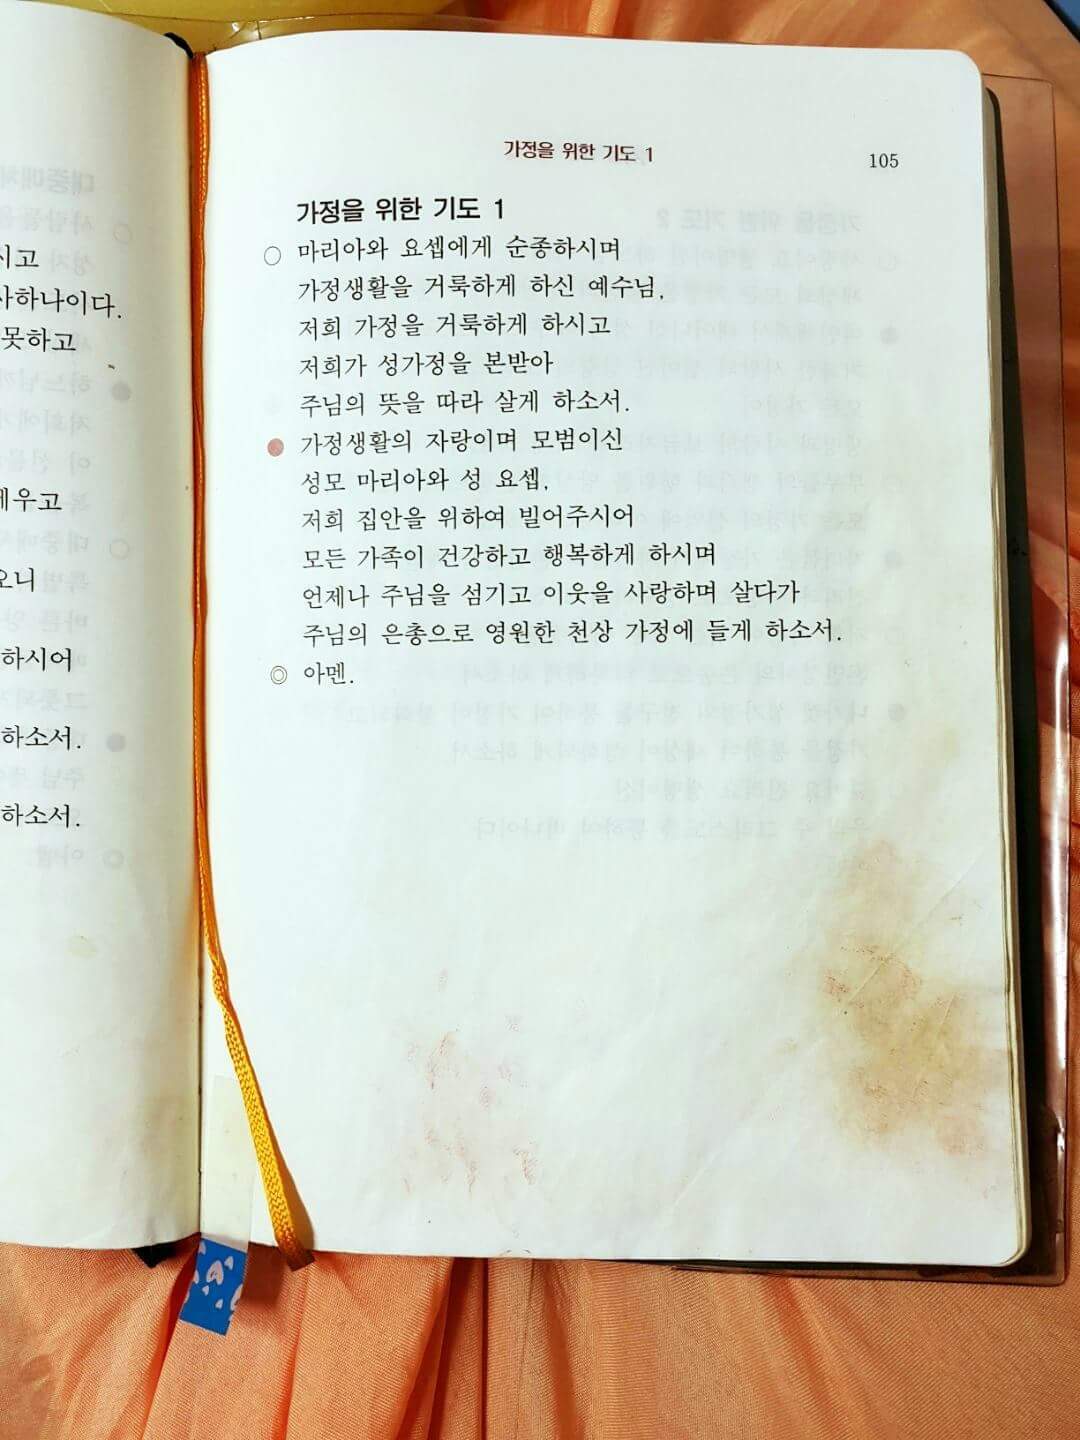 시고
사하나이다.
못하고
세우고
오니
하시어
하소서.
하소서.
가정을 위한 기도 1
105
가정을 위한 기도 1
○ 마리아와 요셉에게 순종하시며
가정생활을 거룩하게 하신 예수님,
저희 가정을 거룩하게 하시고
저희가 성가정을 본받아
주님의 뜻을 따라 살게 하소서.
● 가정생활의 자랑이며 모범이신
성모 마리아와 성 요셉,
저희 집안을 위하여 빌어주시어
모든 가족이 건강하고 행복하게 하시며
언제나 주님을 섬기고 이웃을 사랑하며 살다가
주님의 은총으로 영원한 천상 가정에 들게 하소서.
◎ 아멘.